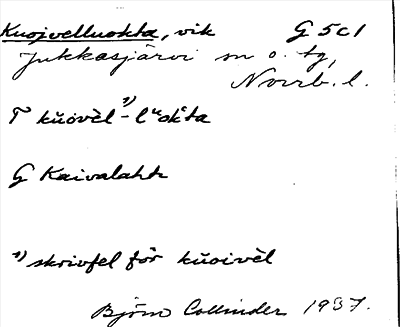 Kuojvelluokta, vik G 5c1
Jukkasjärvi sn o. tg,
Norrb. l.
T kŭovèl¹⁾-lᵘokᶜta
G Kaivalahti
¹⁾ skrivfel för kŭoivèl
Björn Collinder 1937.